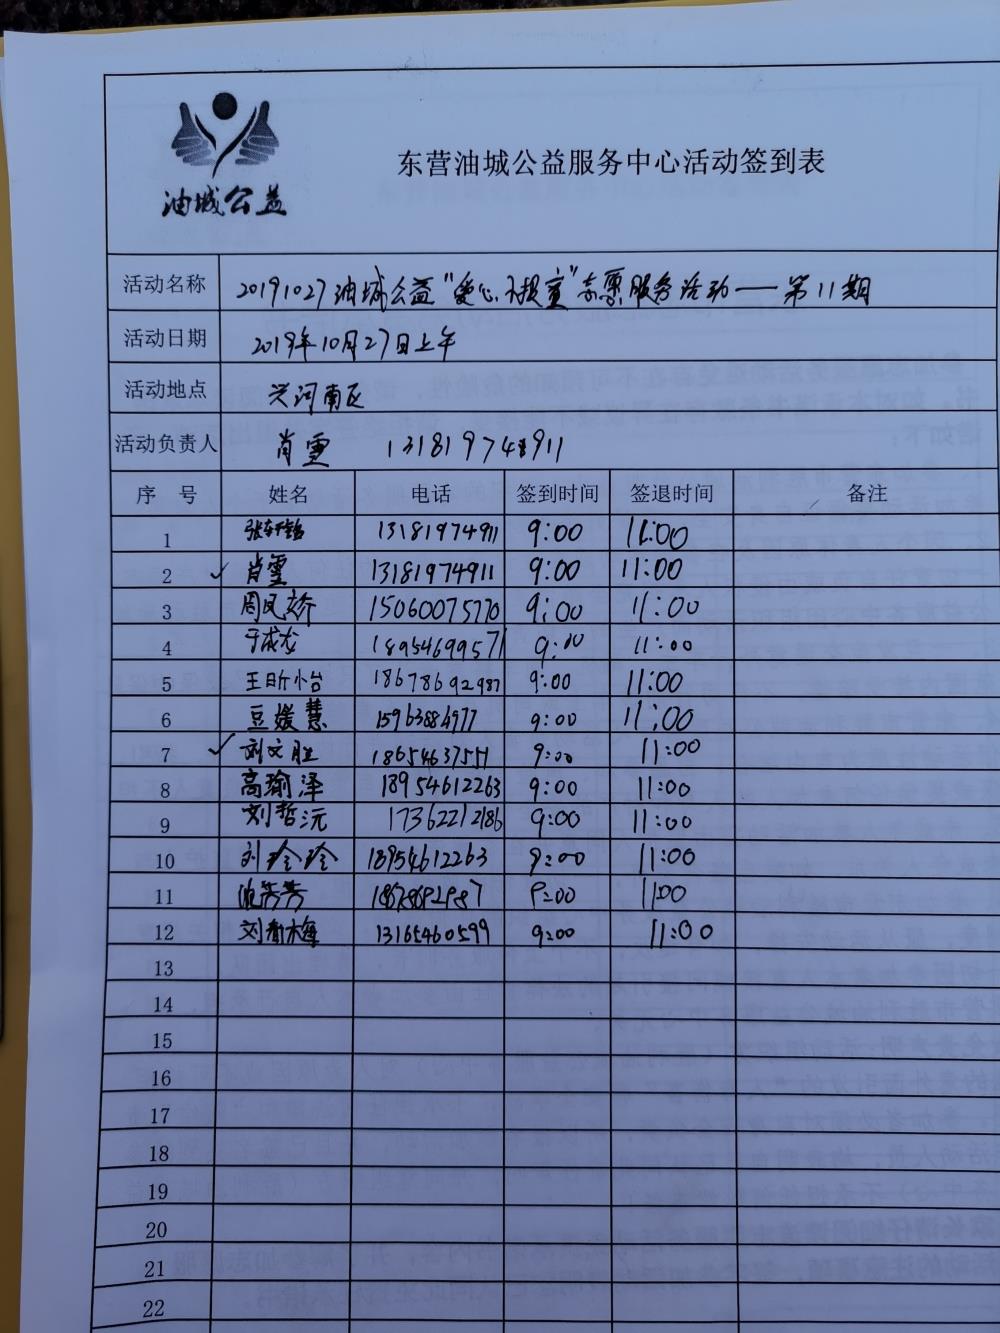 油城公益
东营油城公益服务中心活动签到表
活动名称 20191027油城公益"爱心 教室"志愿服务活动——第11期
活动日期 2019年10月27日上午
活动地点 兴河南区
活动负责人 肖雪
序 号 姓名 电话 签到时间 签退时间 备注
1 13181974911 9:00 11:00
2 ✓ 肖雪 13181974911 9:00 11:00
3 周凤娇 15060075770 9:00 11:00
4 于成龙 18954699571 9:00 11:00
5 王昕怡 18678692987 9:00 11:00
6 豆媛慧 15963884977 9:00 11:00
7 ✓ 刘文胜 9:00 11:00
8 高瑜泽 18954612263 9:00 11:00
9 刘哲沅 17362212186 9:00 11:00
10 刘珍珍 18954612263 9:00 11:00
11 9:00 11:00
12 刘梅 13165460599 9:00 11:00
13
14
15
16
17
18
19
20
21
22